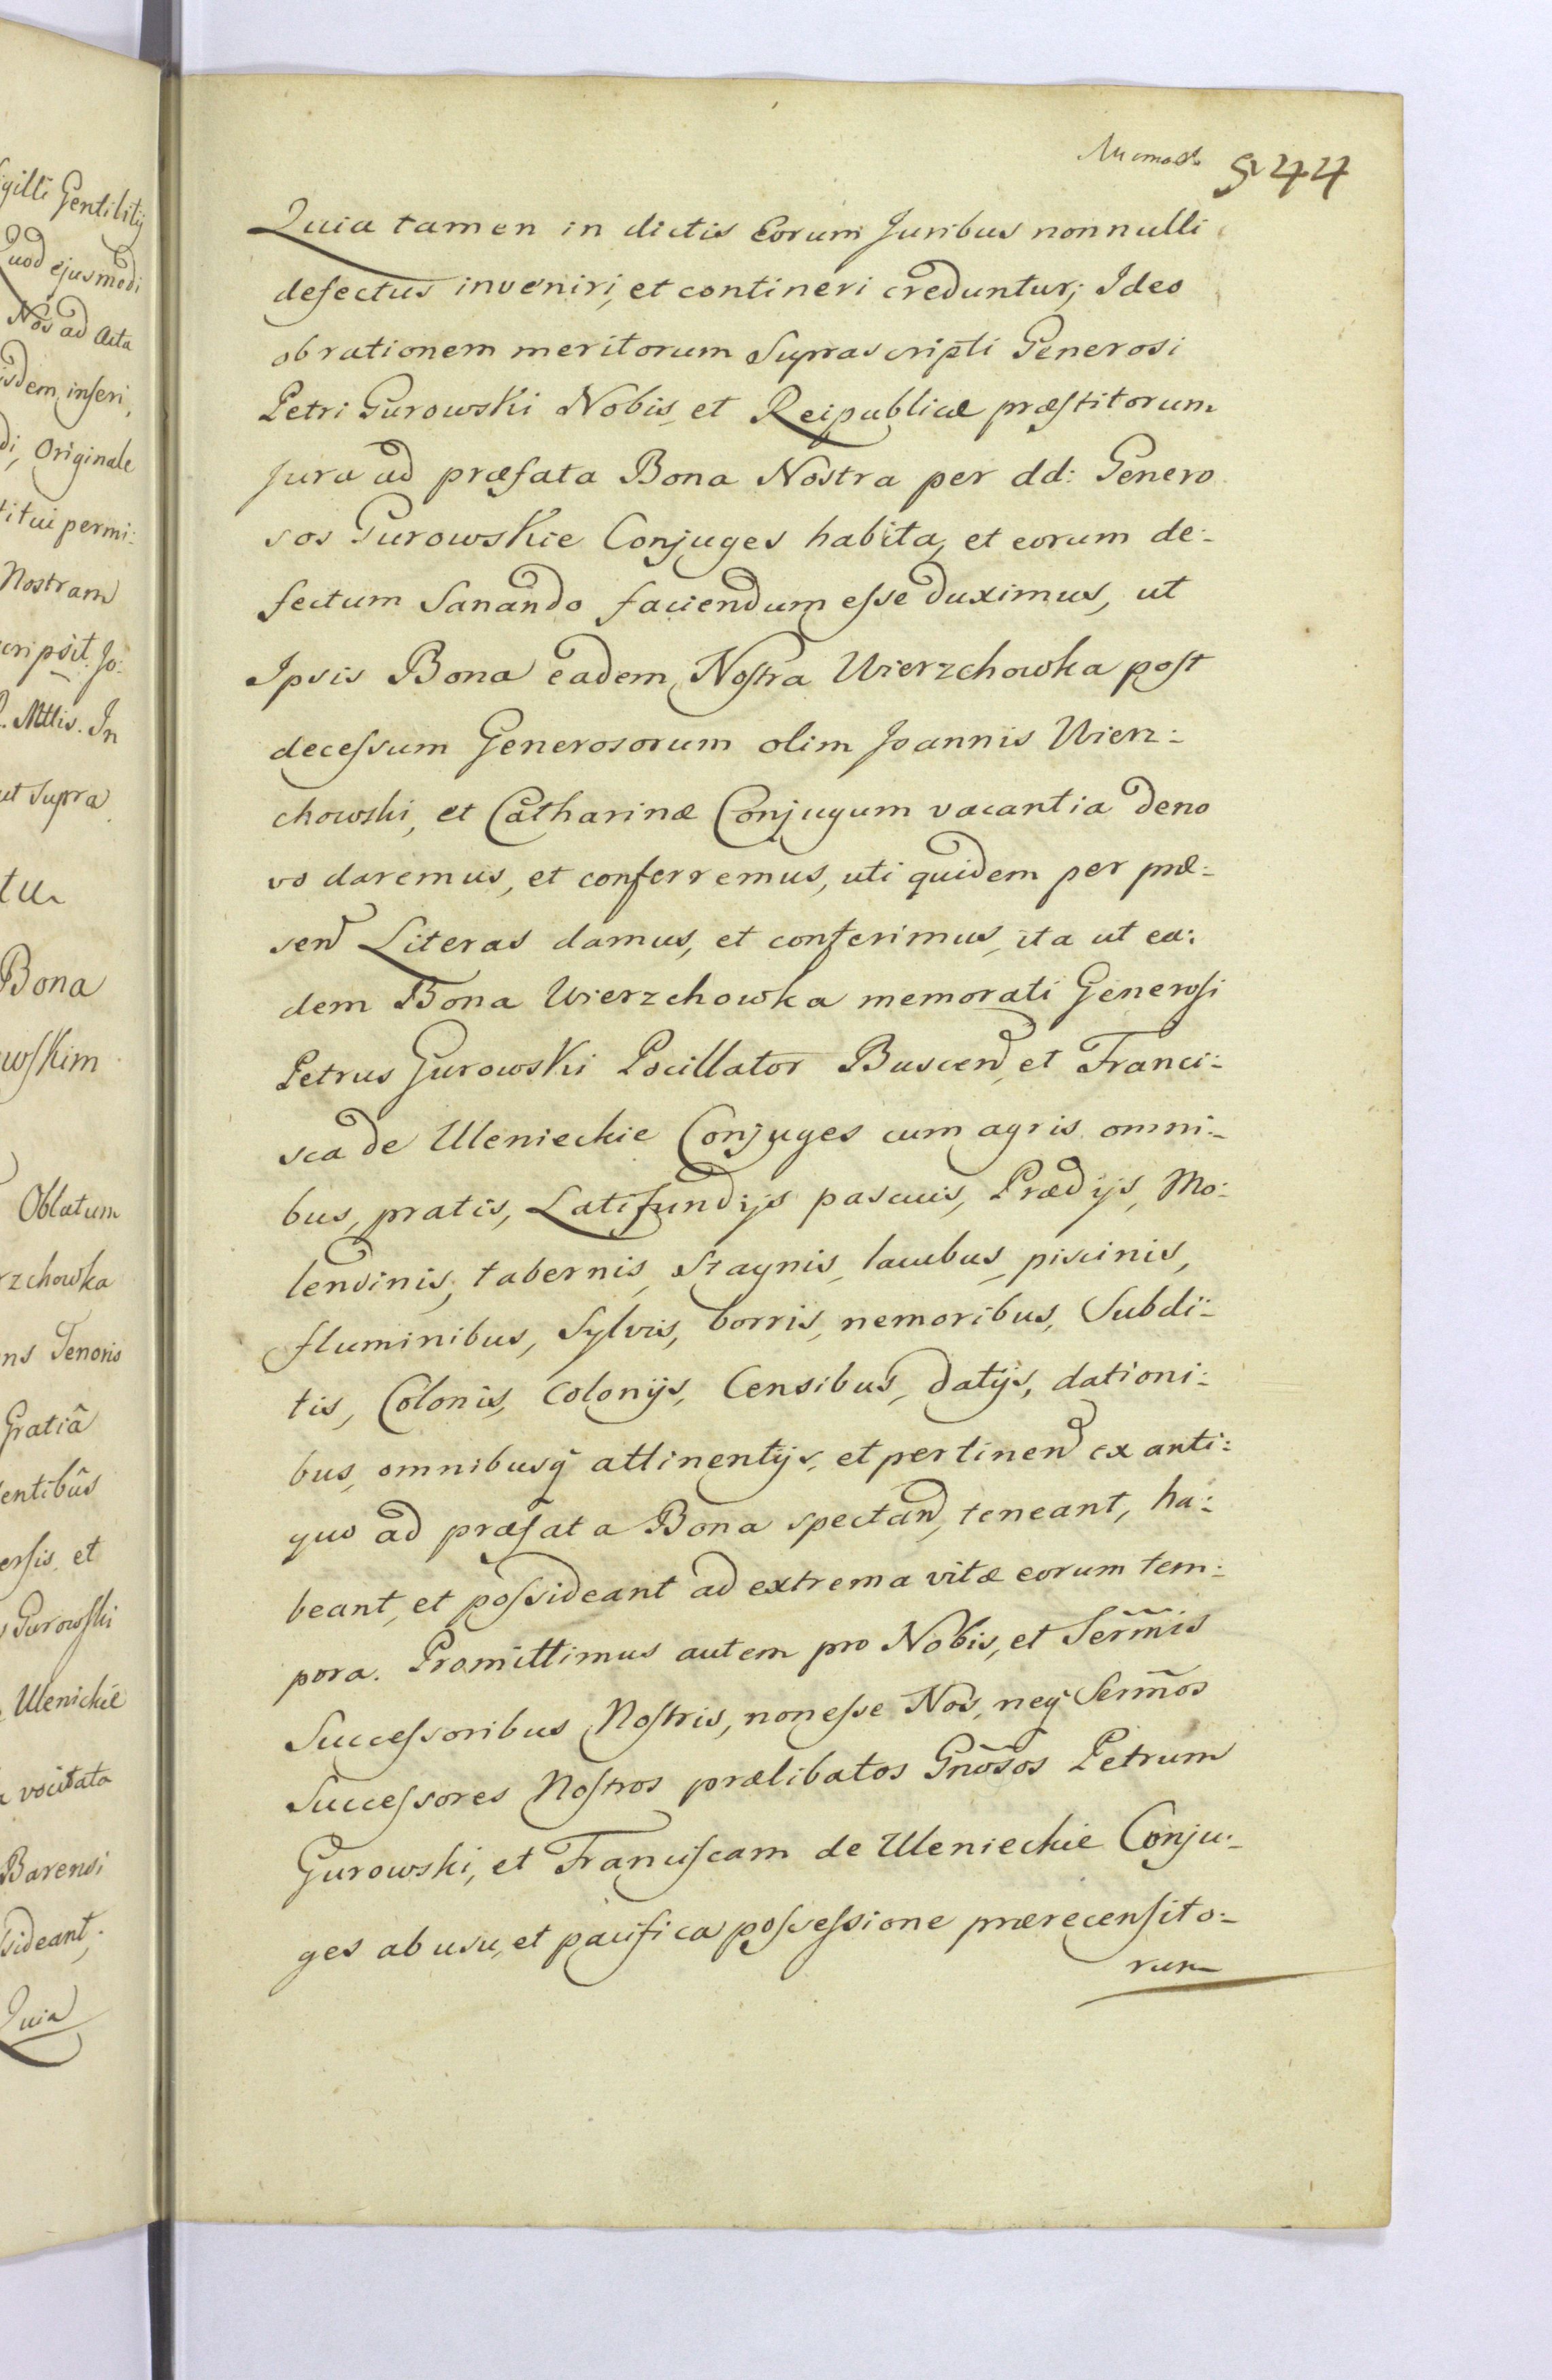 igilli Gentilitij
Quod ejusmodi
Nos ad Acta
isdem inseri,
di, Originale
titui permi:
Nostram
cripsit. Jo:
Mttis. In
ut Supra
Bona
wskim
Oblatum
rzchowka
ns Tenoris
Gratiâ
entibûs
ersis, et
Gurowski
Ulenickie
vocitata
Barensi
sideant;
Quia
5244
Quia tamen in dictis Eorum Juribus nonnulli
defectus inveniri, et contineri creduntur; Ideo
ob rationem meritorum Suprascripti Generosi
Petri Gurowski Nobis, et Reipublicæ præstitorum
Jura ad præfata Bona Nostra per dd: Genero
sos Gurowskie Conjuges habita, et eorum de:
fectum Sanando faciendum esse duximus, ut
Ipsis Bona eadem Nostra Wierzchowka post
decessum Generosorum olim Joannis Wierz:
chowski, et Catharinæ Conjugum vacantia deno
vo daremus, et conferremus, uti quidem per præ:
sen Literas damus, et conferimus, ita ut ea:
dem Bona Wierzchowka memorati Generosi
Petrus Gurowski Pocillator Buscen, et Franci:
sca de Ulenieckie Conjuges cum agris omni:
bus, pratis, Latifundijs pascuis, Prædijs, Mo:
lendinis, tabernis, Stagnis, lacubus, piscinis,
fluminibus, Sylvis, borris, nemoribus, Subdi:
tis, Colonis, Colonijs, Censibus, datijs, dationi:
bus, omnibusq̃ attinentijs, et pertinen ex anti:
quo ad præfata Bona spectan, teneant, ha:
beant, et possideant ad extrema vitæ eorum tem:
pora. Promittimus autem pro Nobis, et Serm̃is
Successoribus Nostris, non esse Nos, neq̃ Serm̃os
Successores Nostros prælibatos Gñosos Petrum
Gurowski, et Franciscam de Ulenieckie Conju:
ges ab usu, et pacifica possessione prærecensito:
rum